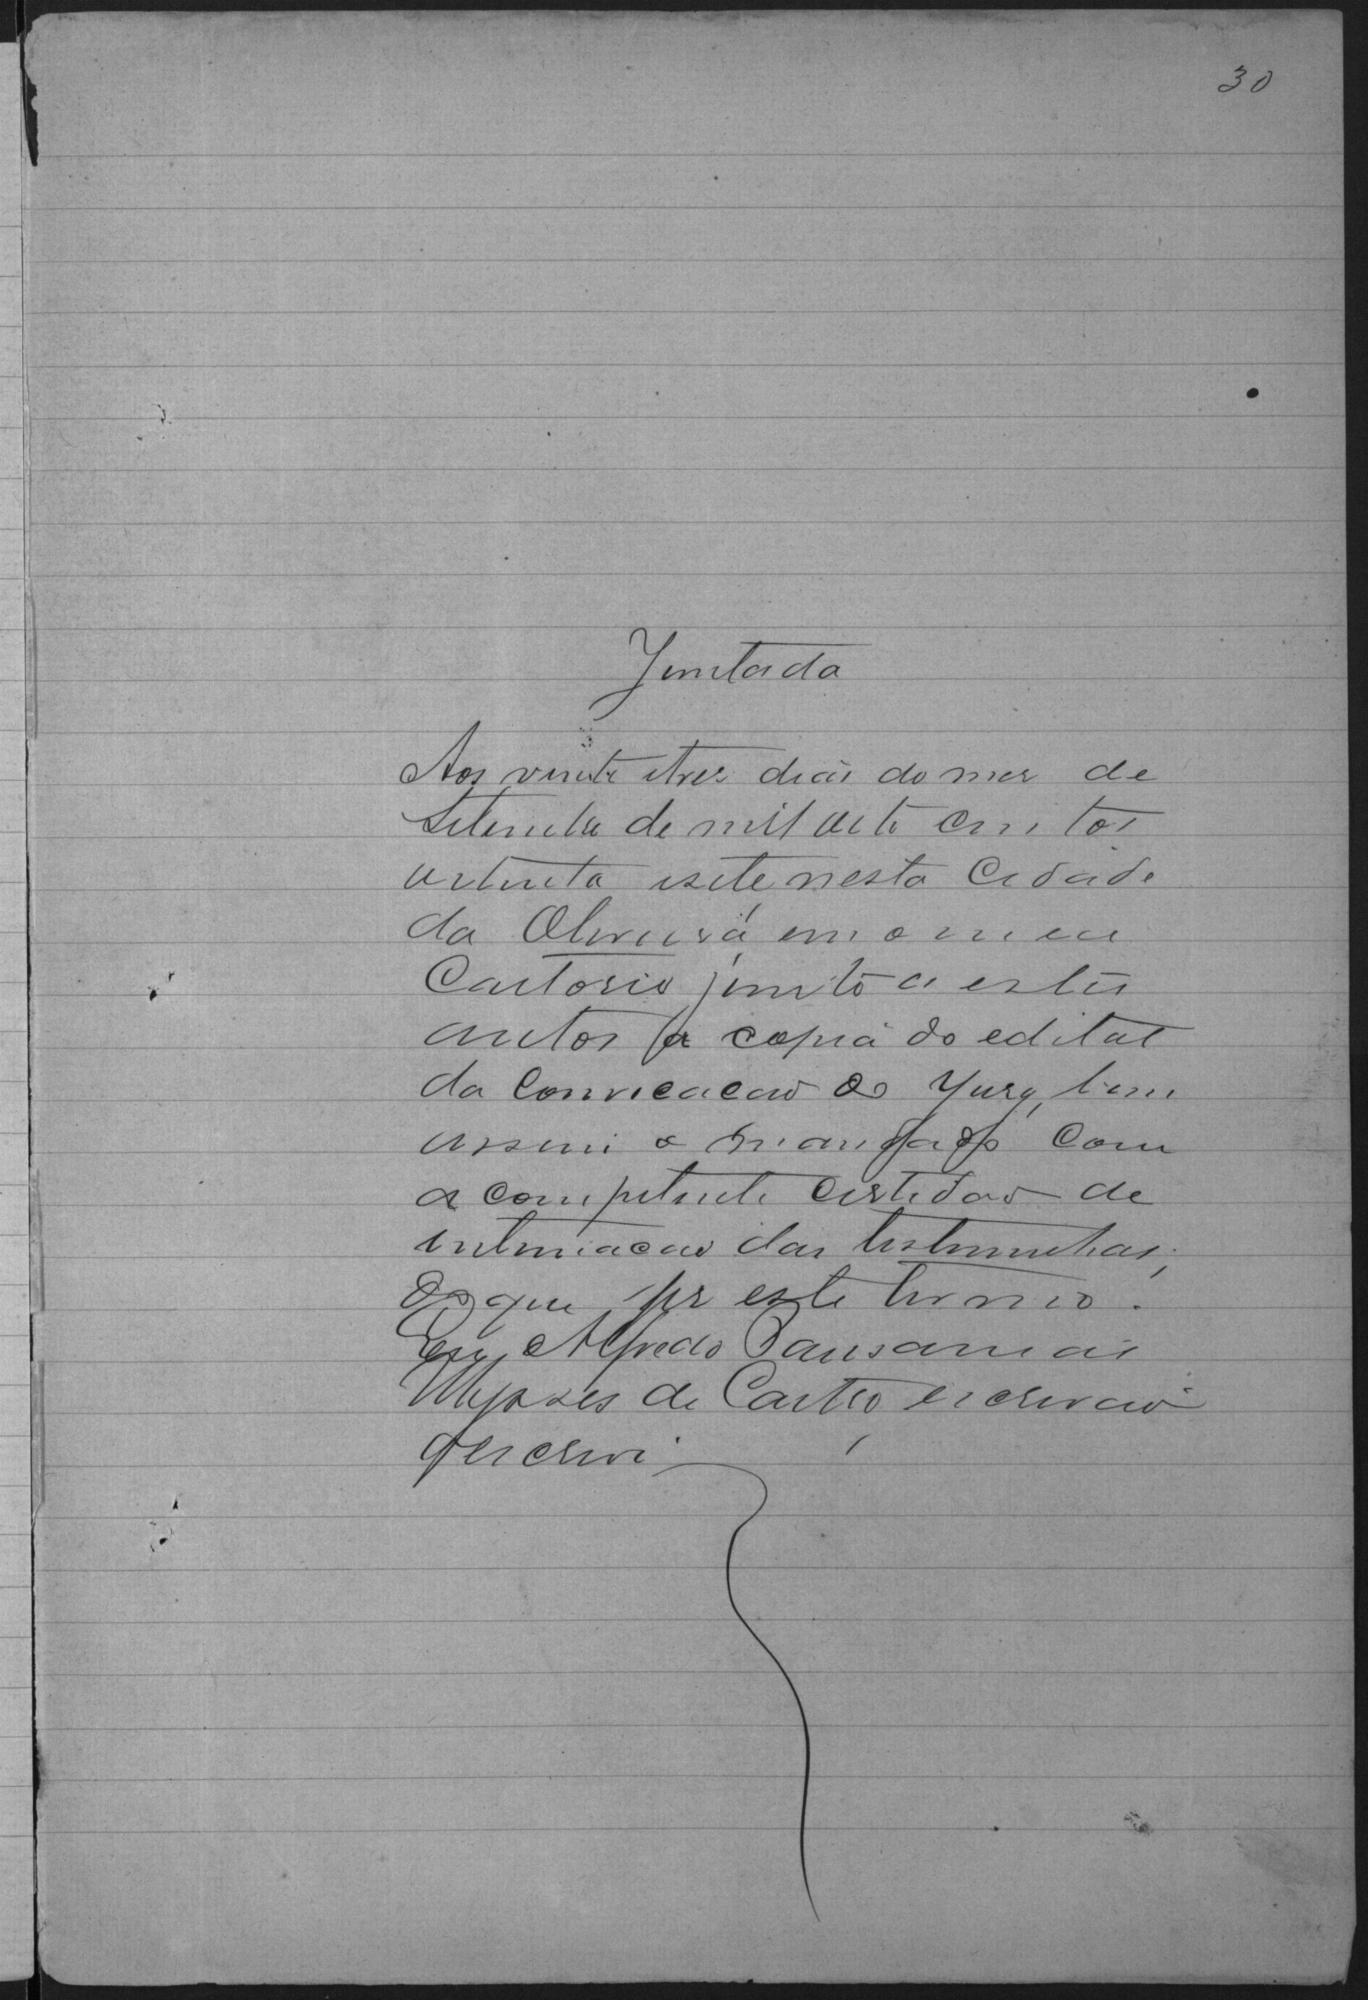 30
Juntada
Aos vinte etres dias do mes de
Setembro de mil oito centos
oitenta esete nesta Cidade
da Oliveira, em o meu
Cartorio junto a estes
autos a copia do edital
da convocacao do Jury, bem
assim o mandado com
a competente certidão de
intimacao das testemunhas;
do que fiz este termo.
Eu, Alfredo Pausanias
Ulysses de Castro, escrivão
q escrevi